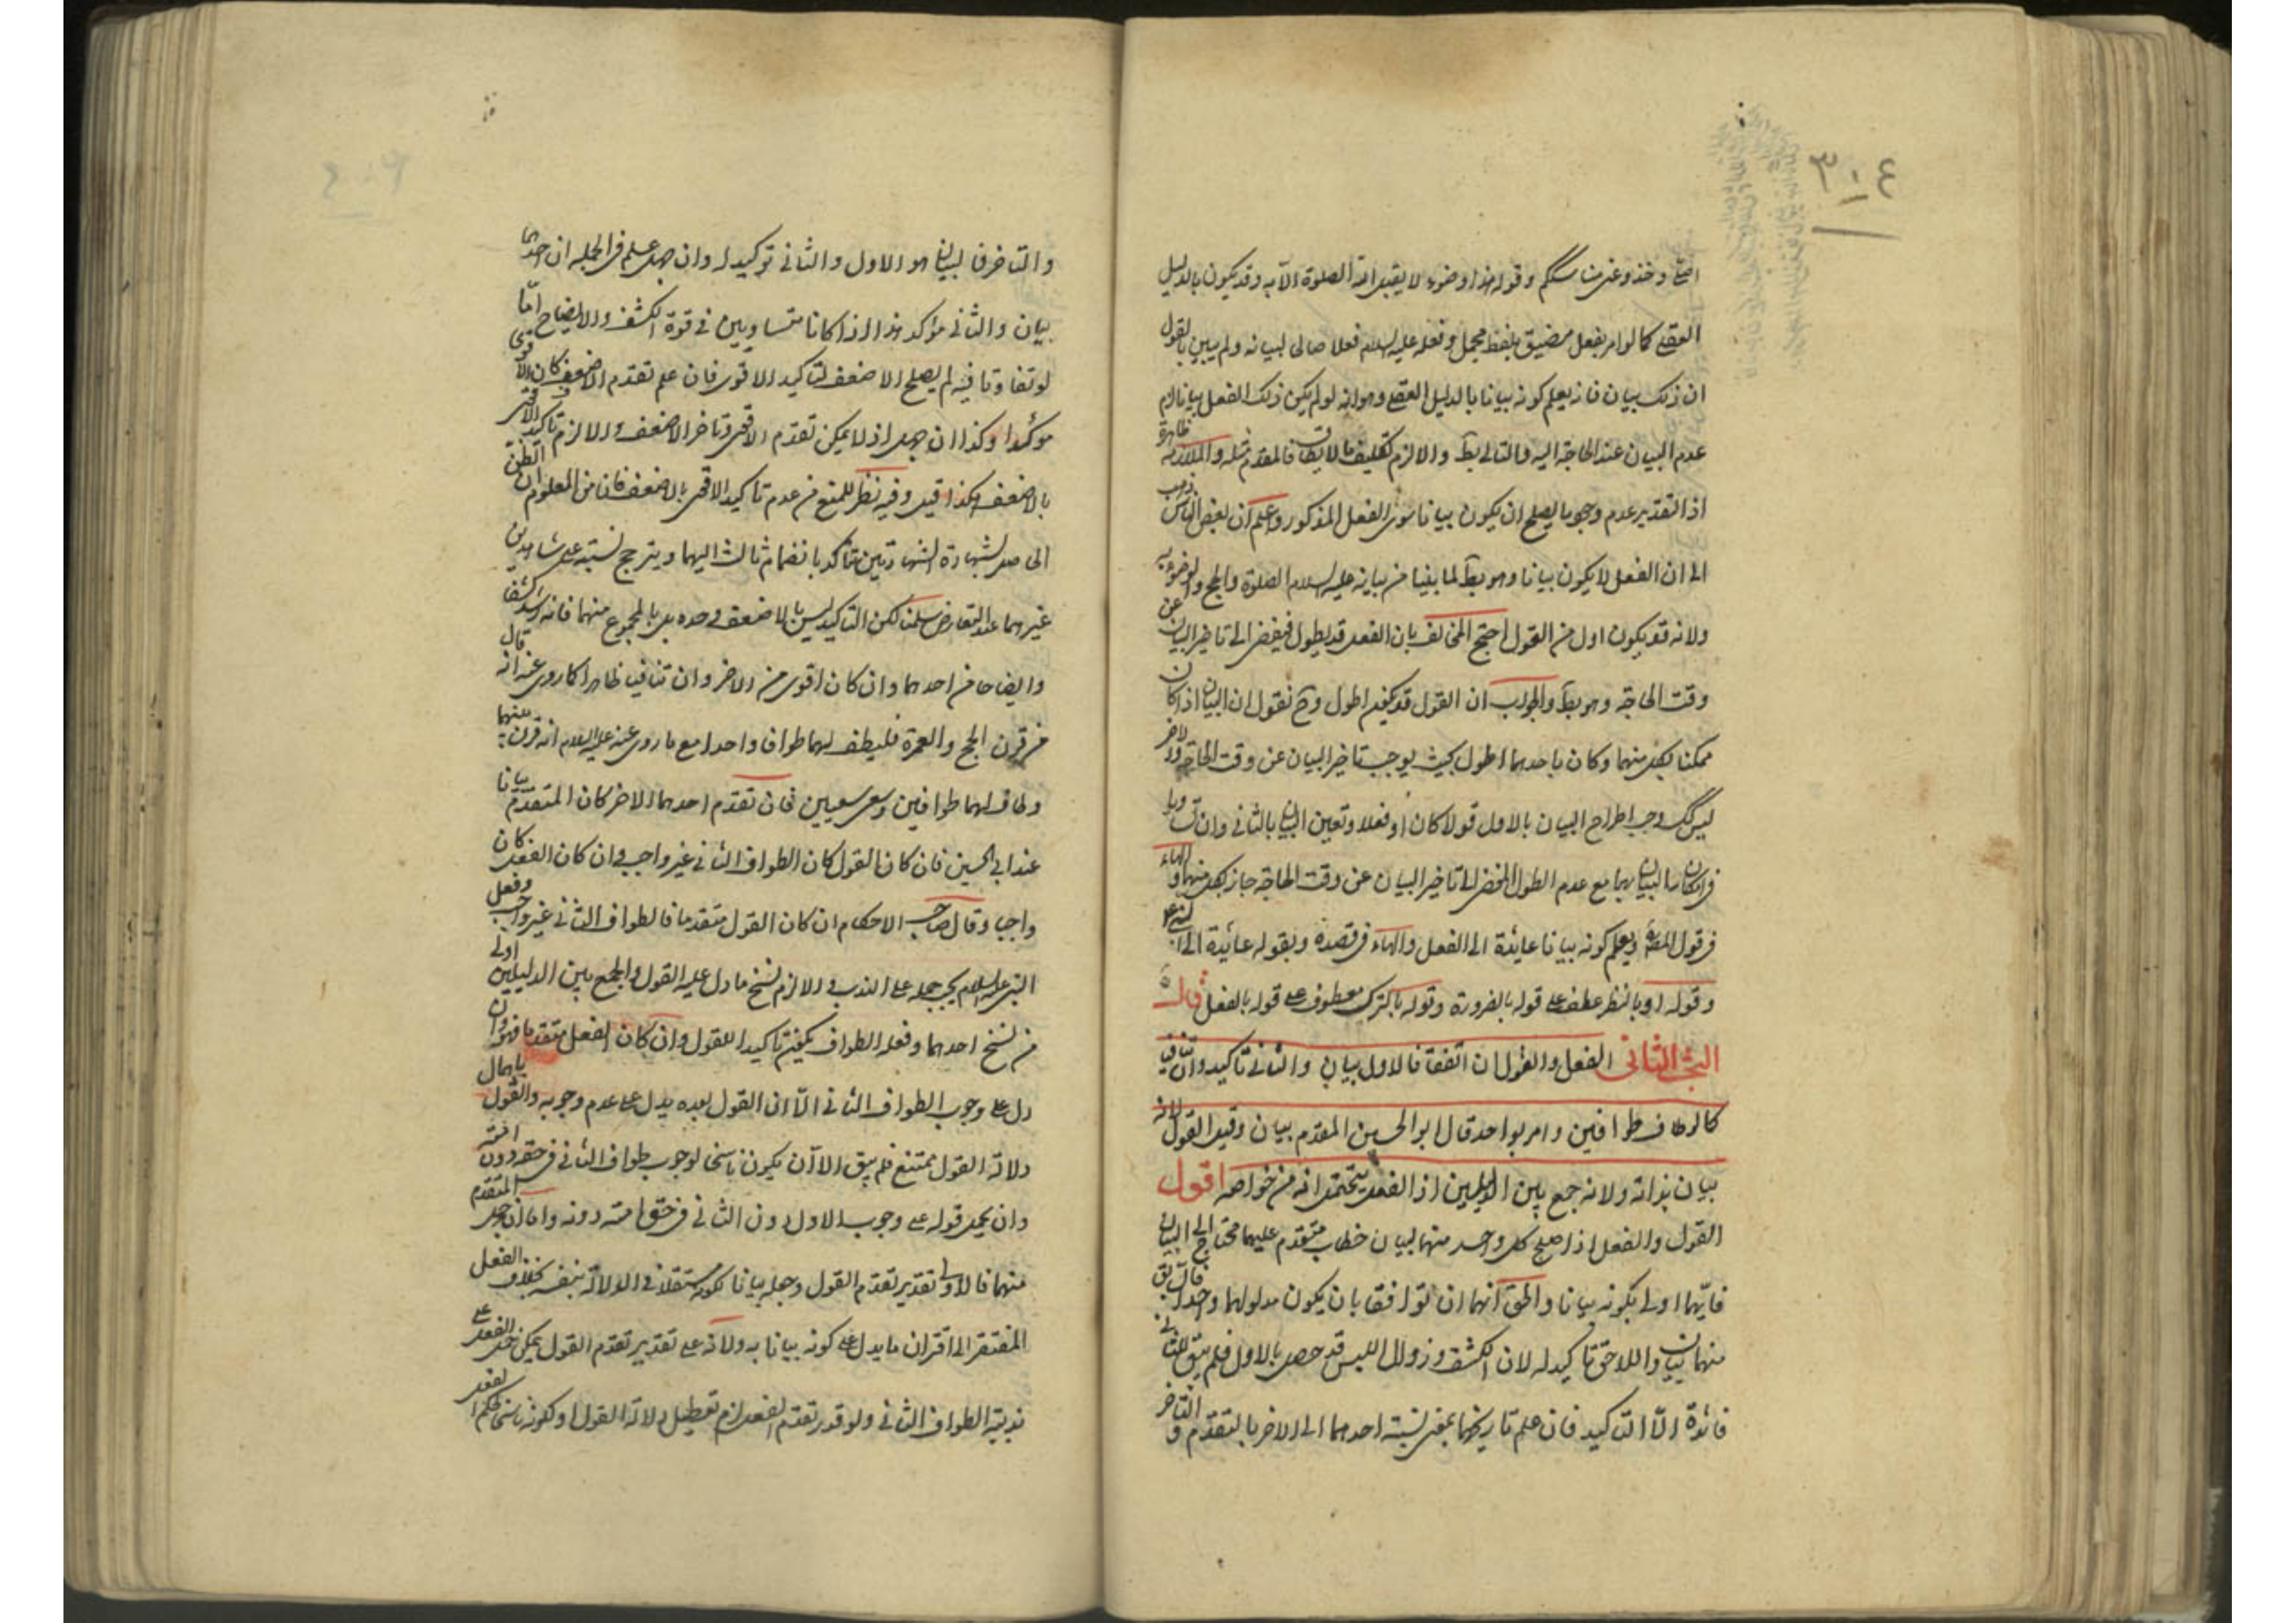 ٣٠٤
اصلى وخذوا عنى مناسككم وقوله هذا وضوء لا يقبل الله الصلوة الا به وقد يكون بالدليل
العقلى كما لو امر بفعل مضيق بلفظ مجمل وفعله عليه السلام فعلا صالحا لبيانه ولم يبين بالقول
ان ذلك بيان فانه يعلم كونه بيانا بالدليل العقلى وهو انه لو لم يكن ذلك الفعل بيانا لزم
عدم البيان عند الحاجة اليه والتالى بط والا لزم تكليف ما لا يطاق فالمقدم مثله والملازمة ظاهرة
اذ التقدير عدم وجود ما يصلح ان يكون بيانا سوى الفعل المذكور واعلم ان بعض الناس ذهب
الى ان الفعل لا يكون بيانا وهو بط لما بينا من بيانه عليه السلام الصلوة والحج والوضوء به
ولانه قد يكون ادل من القول احتج المخالف بان الفعل قد يطول فيفضى الى تاخير البيان عن
وقت الحاجة وهو بط والجواب ان القول قد يكون اطول وح نقول ان البيان اذا كان
ممكنا بكل منهما وكان باحدهما اطول بحيث يوجب تاخير البيان عن وقت الحاجة والاخر
ليس كك وجب اطراح البيان بالاول قولا كان او فعلا وتعين البيان بالثانى وان تساويا
فى امكان البيان بهما مع عدم الطول المفضى الى تاخير البيان عن وقت الحاجة جاز بكل منهما والهاء
فى قول المص ويعلم كونه بيانا عايدة الى الفعل والهاء فى قصده وبقوله عائدة الى النبى ع
وقوله او بالنظر عطف على قوله بالضرورة وقوله بالترك معطوف على قوله بالفعل قال
البحث الثانى الفعل والقول ان اتفقا فالاول بيان والثانى تاكيد وان تنافيا
كما لو طاف طوافين وامر بواحد قال ابو الحسين المقدم بيان وقيل القول لانه
بيان بذاته ولانه جمع بين الدليلين اذ الفعل يحتمل انه من خواصه اقول
القول والفعل اذا صلح كل واحد منهما لبيان خطاب متقدم عليهما محتاج الى البيان
فايهما اولى بكونه بيانا والحق انهما ان توافقا بان يكون مدلولهما واحدا فالسابق
منهما بيان واللاحق تاكيد له لان الكشف وزوال اللبس قد حصل بالاول فلم يبق للثانى
فائدة الا التاكيد فان علم تاريخهما بمعنى نسبة احدهما الى الاخر بالتقدم والتاخر
والتاخر فالبيان هو الاول والثانى توكيد له وان جهل علم فى الجملة ان احدهما
بيان والثانى مؤكد هذا اذا كانا متساويين فى قوة الكشف والايضاح اما
لو تفاوتا فيه لم يصلح الاضعف لتاكيد الاقوى فان علم تقدم الاضعف كان الاقوى
مؤكدا وكذا ان جهل اذ لا يمكن تقدم الاقوى وتاخر الاضعف والا لزم تاكيد الاقوى
بالاضعف هكذا قيل وفيه نظر للمنع من عدم تاكيد الاقوى بالاضعف فان من المعلوم ان الظن
الحاصل بشهادة الشاهدين يتاكد بانضمام ثالث اليهما ويترجح نسبته على شاهدين
غيرهما عند التعارض سلمنا لكن التاكيد ليس بالاضعف وحده بل بالمجموع منهما فانه اشد كشفا
وايضاحا من احدهما وان كان اقوى من الاخر وان تنافيا ظاهرا كما روى عنه انه قال
من قرن الحج والعمرة فليطف لهما طوافا واحدا مع ما روى عنه عليه السلام انه قرن بينهما
وطاف لهما طوافين وسعى سعيين فان تقدم احدهما الاخر كان المتقدم بيانا
عند ابى الحسين فان كان القول كان الطواف الثانى غير واجب وان كان الفعل كان
واجبا وقال صاحب الاحكام ان كان القول متقدما فالطواف الثانى غير واجب وفعل
النبى عليه السلام يجب حمله على الندب والا لزم نسخ ما دل عليه القول والجمع بين الدليلين اولى
من نسخ احدهما وفعله الطواف يكون تاكيدا للقول وان كان الفعل متقدما فهو وان
دل على وجوب الطواف الثانى الا ان القول بعده يدل على عدم وجوبه والقول باهمال
دلالة القول ممتنع فلم يبق الا ان يكون ناسخا لوجوب طواف الثانى فى حقه دون امته
وان يحمل قوله على وجوب الاول دون الثانى فى حق امته دونه واما ان جهل المتقدم
منهما فالاولى تقدير تقدم القول وجعله بيانا لكونه مستقلا فى الدلالة بنفسه بخلاف الفعل
المفتقر الى اقتران ما يدل على كونه بيانا به ولانه على تقدير تقدم القول يمكن حمل الفعل على
ندبية الطواف الثانى ولو قدر تقدم الفعل لزم تعطيل دلالة القول او لكونه ناسخا لحكم الفعل